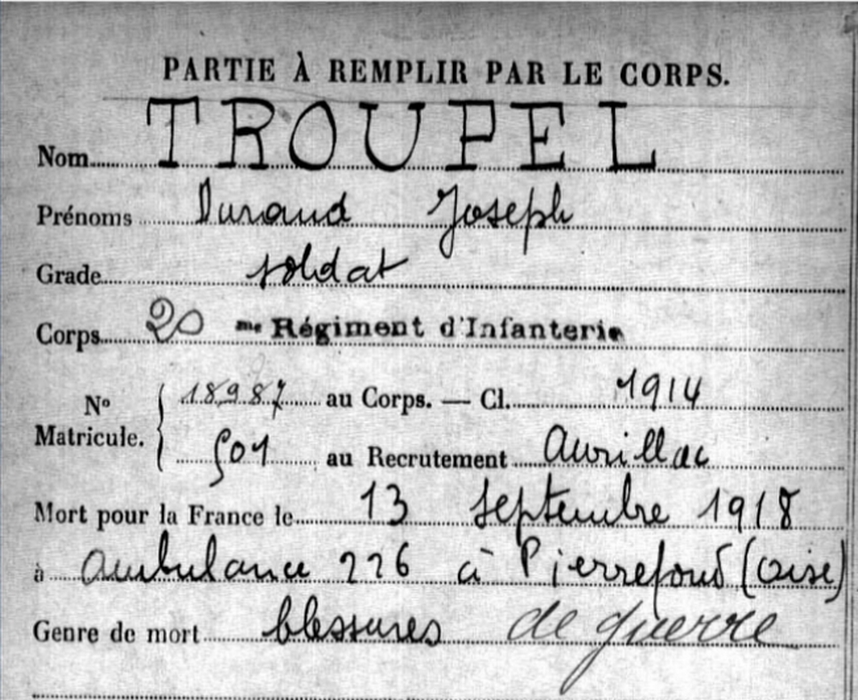 PARTIE À REMPLIR PAR LE CORPS.
Nom TROUPEL
Prénoms Durand Joseph
Grade soldat
Corps 20 me Régiment d'Infanterie
No Matricule. { 18987 au Corps. — Cl. 1914
501 au Recrutement Aurillac
Mort pour la France le 13 septembre 1918
à ambulance 226 à Pierrefond (Oise)
Genre de mort blessures de guerre